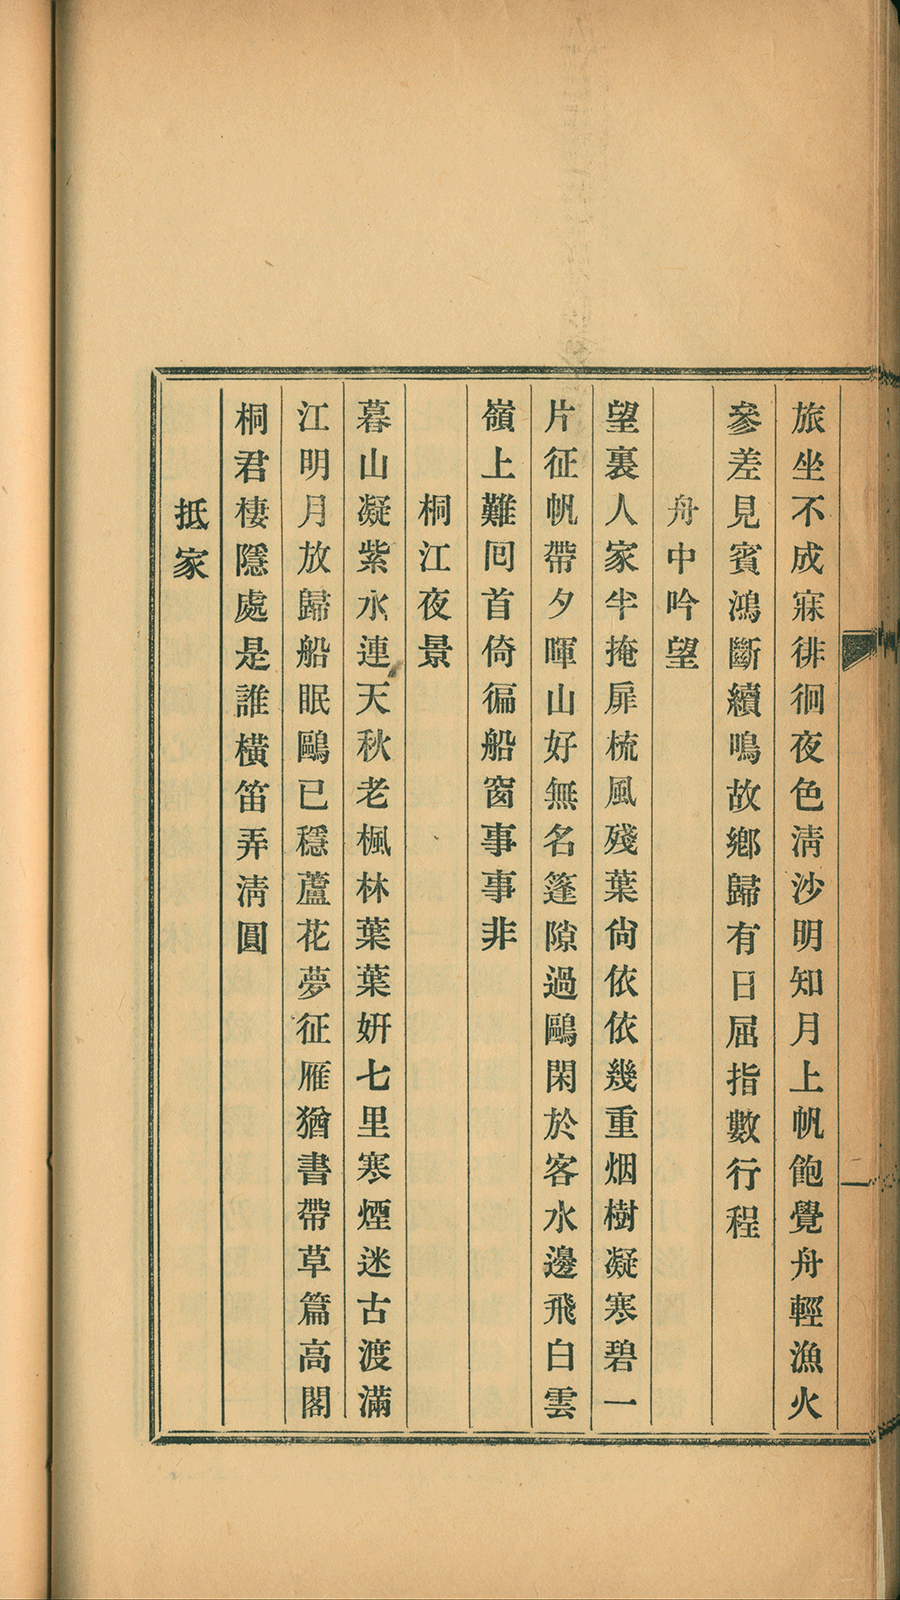 旅坐不成寐徘徊夜色淸沙明知月上帆飽覺舟輕漁火
參差見賓鴻斷續鳴故鄕歸有日屈指數行程
舟中吟望
望裏人家半掩扉梳風殘葉尙依依幾重烟樹凝寒碧一
片征帆帶夕暉山好無名篷隙過鷗閑於客水邊飛白雲
嶺上難囘首倚徧船窗事事非
桐江夜景
暮山凝紫水連天秋老楓林葉葉姸七里寒煙迷古渡滿
江明月放歸船眠鷗已穩蘆花夢征雁猶書帶草篇高閣
桐君棲隱處是誰橫笛弄淸圓
抵家